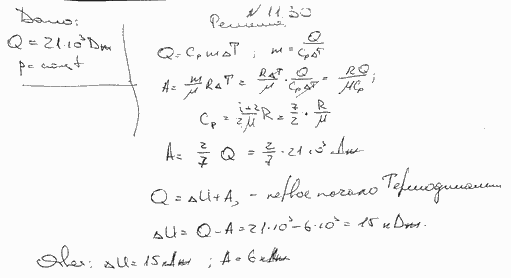 N 11.30
Дано:
Q = 21·10³ Дж
p = const
Решение:
Q = Cp m ΔT ; m = Q / CpΔT
A = m/μ RΔT = RΔT/μ · Q/CpΔT = RQ/μCp ;
Cp = i+2/2μ R = 7/2 · R/μ
A = 2/7 Q = 2/7 · 21·10³ Дж
Q = ΔU + A, - первое начало Термодинамики
ΔU = Q - A = 21·10³ - 6·10³ = 15 кДж.
Ответ: ΔU = 15 кДж ; A = 6 кДж